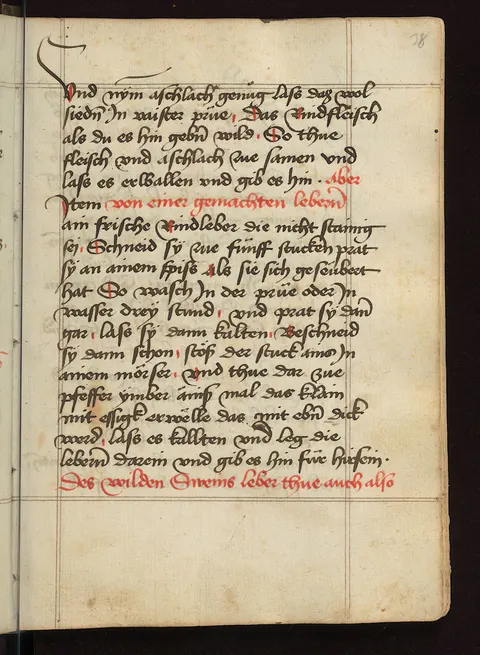 38
Vnd nym aschlach genüg lass daz wol
siedn In vaister prüe, Das Rindfleisch
als du es hin gebn wild, So thue
fleisch vnd aschlach zue samen vnd
lass es erwallen vnd gib es hin. Aber
Item von einer gemachten lebern
ain frische Rindleber die nicht stainig
sei, Schneid sy zue fünff stucken prat
sy an ainem spiss Als sie sich geseubert
hat So wasch In der prüe oder In
wasser drey stund, vnd prat sy dan
gar, lass sy dann kalten, Beschneid
sy dann schon, stös der stuck ains In
ainem mörser, Vnd thue dar zue
pfeffer ymber ains mal das klain
mit essigk erwelle das mit ebn dick
werd, lass es kallten vnd leg die
lebern darein vnd gib es hin für hirsein.
Des wilden Sweins leber thue auch also